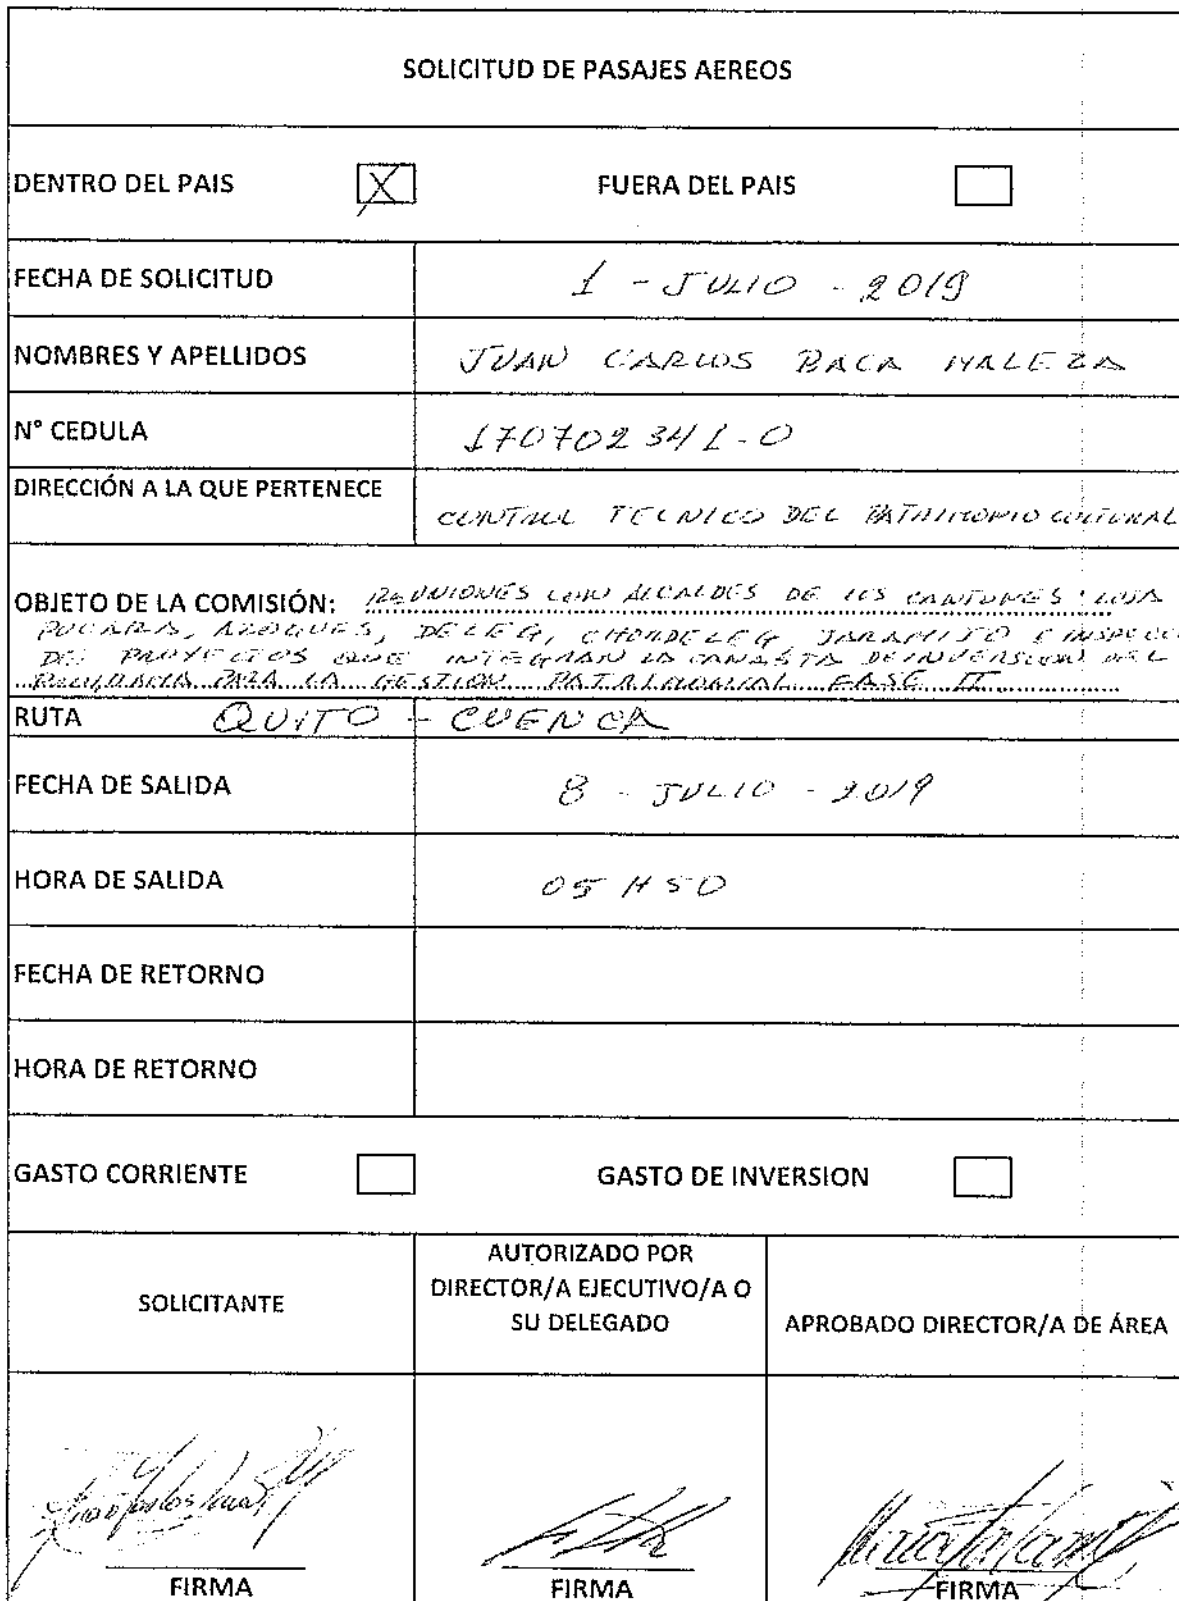 SOLICITUD DE PASAJES AEREOS
DENTRO DEL PAIS X FUERA DEL PAIS
FECHA DE SOLICITUD 1 - JULIO - 2019
NOMBRES Y APELLIDOS JUAN CARLOS BACA MALEZA
N° CEDULA 170702341-0
DIRECCIÓN A LA QUE PERTENECE
CONTROL TECNICO DEL PATRIMONIO CULTURAL
OBJETO DE LA COMISIÓN: REUNIONES CON ALCALDES DE LOS CANTONES: LOJA
PUCARA, AZOGUES, DELEG, CHORDELEG JARAMIJO E INSPECC
DE PROYECTOS QUE INTEGRAN LA CANASTA DE INVERSION DEL
PROGRAMA PARA LA GESTION PATRIMONIAL FASE II
RUTA QUITO - CUENCA
FECHA DE SALIDA 8 - JULIO - 2019
HORA DE SALIDA 05H50
FECHA DE RETORNO
HORA DE RETORNO
GASTO CORRIENTE GASTO DE INVERSION
SOLICITANTE
AUTORIZADO POR
DIRECTOR/A EJECUTIVO/A O
SU DELEGADO
APROBADO DIRECTOR/A DE ÁREA
FIRMA FIRMA FIRMA